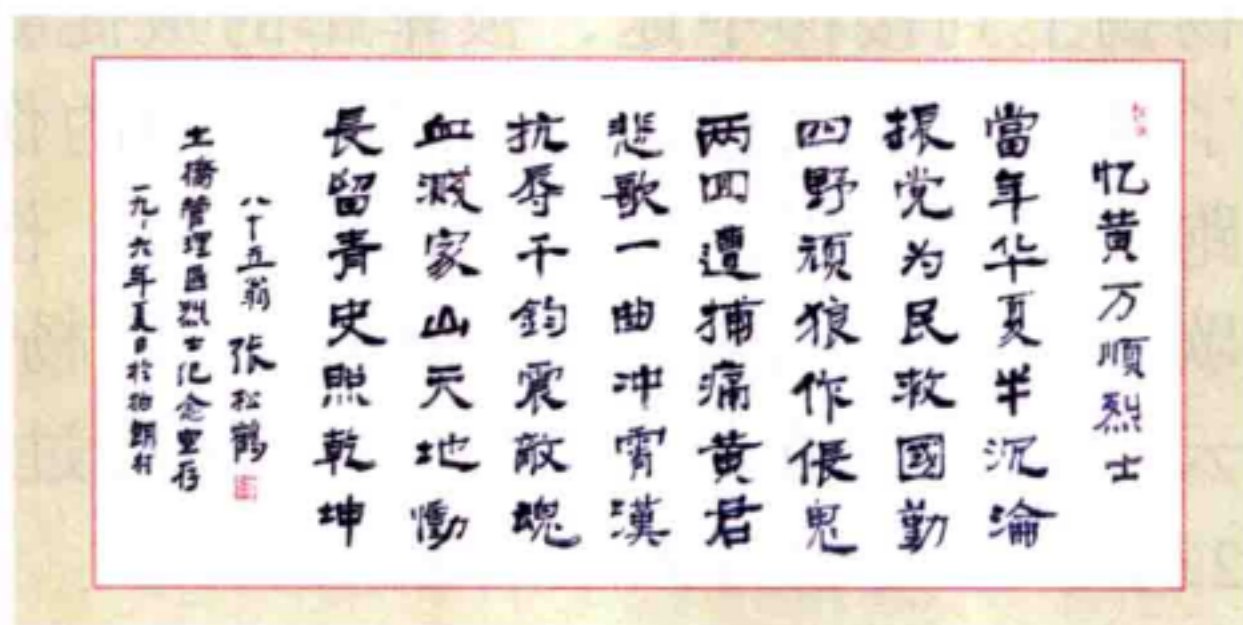 忆黄万顺烈士
當年华夏半沉淪
振党为民救國勤
四野顽狼作伥鬼
两回遭捕痛黄君
悲歌一曲冲霄漢
抗辱千鈞震敵魂
血溅家山天地慟
長留青史照乾坤
八十五翁 张松鹤
土橋管理區烈士纪念堂存
一九九六年夏日於柏朗村